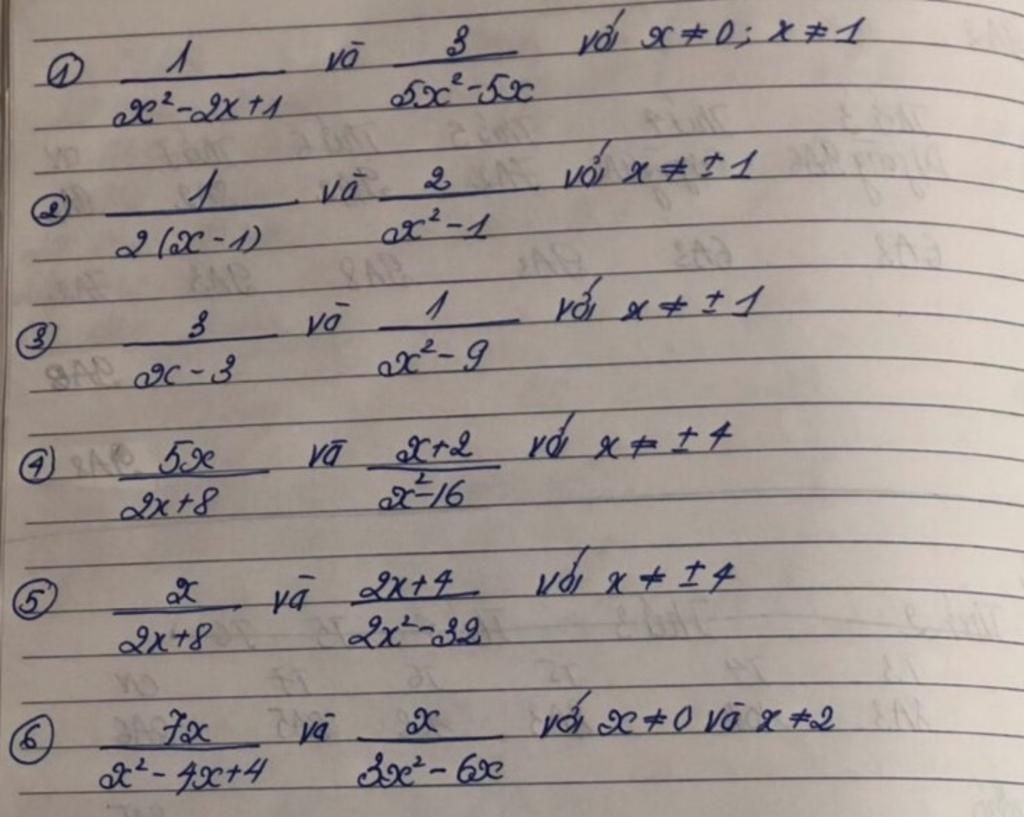 ① 1/(x² - 2x + 1) và 3/(5x² - 5x) với x ≠ 0; x ≠ 1
② 1/(2(x - 1)) và 2/(x² - 1) với x ≠ ± 1
③ 3/(x - 3) và 1/(x² - 9) với x ≠ ± 1
④ 5x/(2x + 8) và (x + 2)/(x² - 16) với x ≠ ± 4
⑤ x/(2x + 8) và (2x + 4)/(2x² - 32) với x ≠ ± 4
⑥ 7x/(x² - 4x + 4) và x/(3x² - 6x) với x ≠ 0 và x ≠ 2